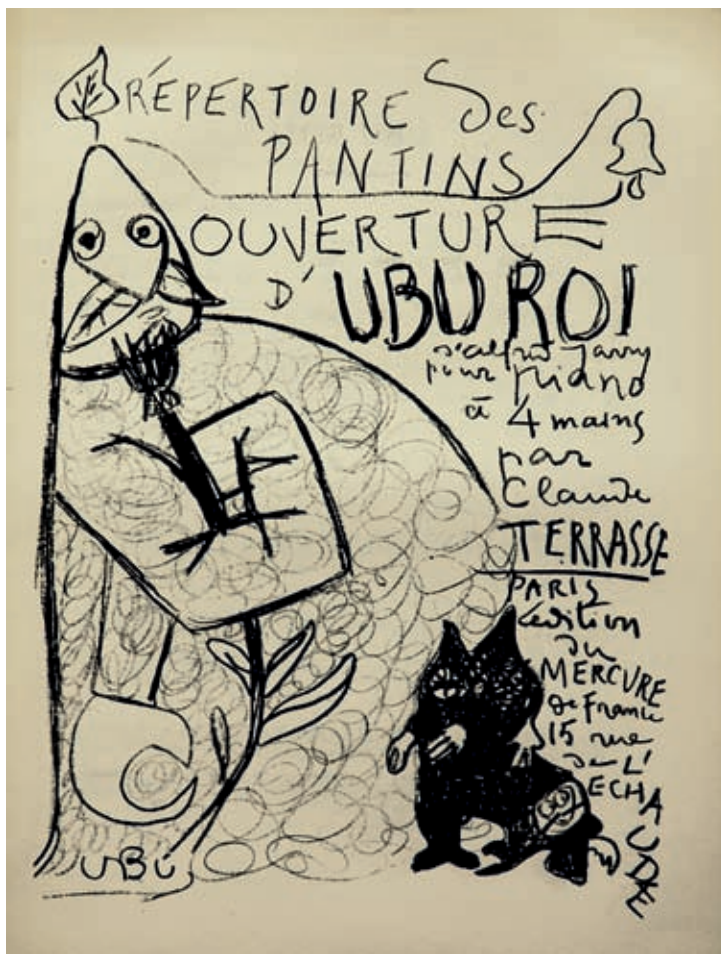 RÉPERTOIRE Des
PANTINS
OUVERTURE
D' UBU ROI
d'alfred Jarry
pour piano
à 4 mains
par
Claude
TERRASSE
PARIS
édition
du
MERCURE
de France
15 rue
de L'
ECHAUDÉ
UBU